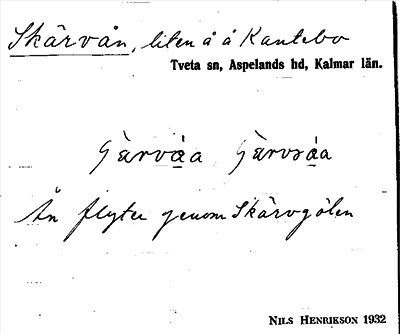 Skärvån, liten å å Kantebo
Tveta sn, Aspelands hd, Kalmar län.
Gärvåa Gärvsåa
Ån flyter genom Skärvgölen
NILS HENRIKSON 1932